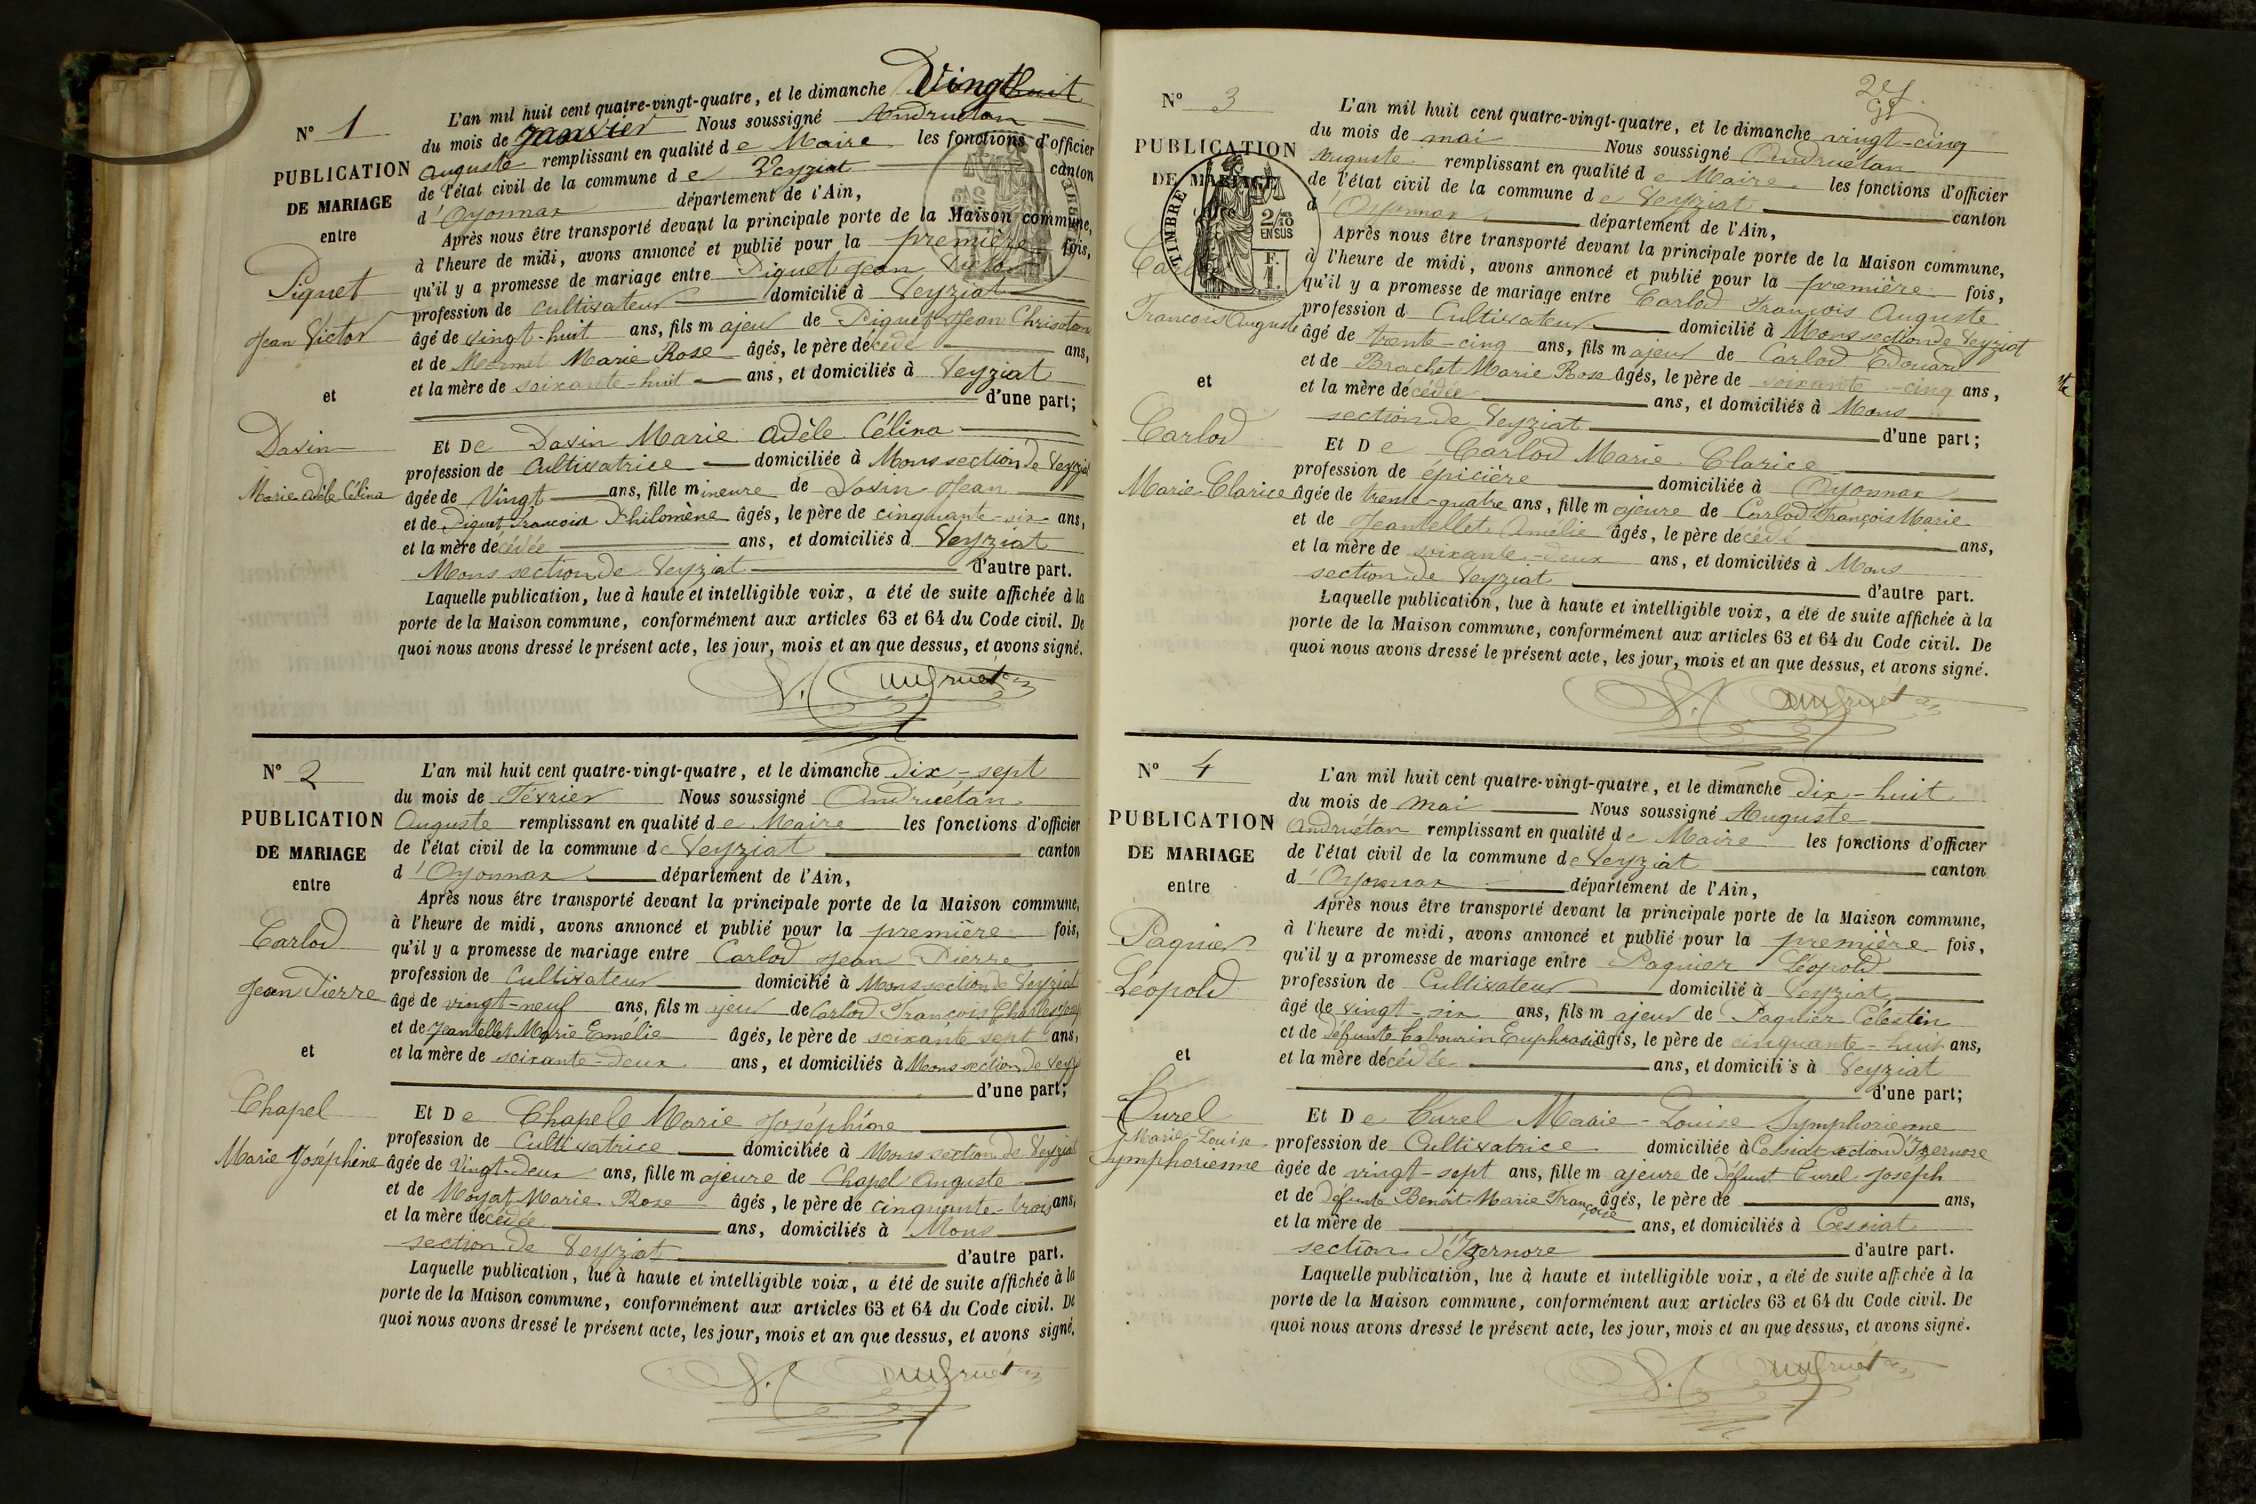 N° 1
PUBLICATION
DE MARIAGE
entre
Piguet
Jean Victor
et
Davin
Marie Adèle Célina
L'an mil huit cent quatre-vingt-quatre, et le dimanche Vingt huit
du mois de Janvier Nous soussigné Andruétan
Auguste remplissant en qualité de Maire les fonctions d'officier
de l'état civil de la commune de Veyziat canton
d'Oyonnax département de l'Ain,
Après nous être transporté devant la principale porte de la Maison commune,
à l'heure de midi, avons annoncé et publié pour la première fois,
qu'il y a promesse de mariage entre Piguet Jean Victor
profession de cultivateur domicilié à Veyziat
âgé de vingt-huit ans, fils majeur de Piguet Jean
et de Marie Rose âgés, le père décédé ans,
et la mère de soixante-huit ans, et domiciliés à Veyziat
d'une part;
Et De Davin Marie Adèle Célina
profession de Cultivatrice domiciliée à Mons section de Veyziat
âgée de Vingt ans, fille mineure de Davin Jean
et de Piguet Philomène âgés, le père de cinquante-six ans,
et la mère décédée ans, et domiciliés à Veyziat
Mons section de Veyziat d'autre part.
Laquelle publication, lue à haute et intelligible voix, a été de suite affichée à la
porte de la Maison commune, conformément aux articles 63 et 64 du Code civil. De
quoi nous avons dressé le présent acte, les jour, mois et an que dessus, et avons signé.
A. Andruétan
N° 2
PUBLICATION
DE MARIAGE
entre
Carlod
Jean Pierre
et
Chapel
Marie Joséphine
L'an mil huit cent quatre-vingt-quatre, et le dimanche dix-sept
du mois de Février Nous soussigné Andruétan
Auguste remplissant en qualité de Maire les fonctions d'officier
de l'état civil de la commune de Veyziat canton
d'Oyonnax département de l'Ain,
Après nous être transporté devant la principale porte de la Maison commune,
à l'heure de midi, avons annoncé et publié pour la première fois,
qu'il y a promesse de mariage entre Carlod Jean Pierre
profession de Cultivateur domicilié à Mons section de Veyziat
âgé de vingt-neuf ans, fils majeur de Carlod François Charles
et de Jeantellet Marie Emélie âgés, le père de soixante sept ans,
et la mère de soixante-deux ans, et domiciliés à Mons section de Veyz
d'une part;
Et De Chapele Marie Joséphine
profession de Cultivatrice domiciliée à Mons section de Veyziat
âgée de Vingt-deux ans, fille majeure de Chapel Auguste
et de Moyat Marie Rose âgés, le père de cinquante-trois ans,
et la mère décédée ans, domiciliés à Mons
section de Veyziat d'autre part.
Laquelle publication, lue à haute et intelligible voix, a été de suite affichée à la
porte de la Maison commune, conformément aux articles 63 et 64 du Code civil. De
quoi nous avons dressé le présent acte, les jour, mois et an que dessus, et avons signé.
A. Andruétan
N° 3
PUBLICATION
DE MARIAGE
TIMBRE
2/10
EN SUS
F.
1.
François Auguste
et
Carlod
Marie Clarice
L'an mil huit cent quatre-vingt-quatre, et le dimanche vingt-cinq
du mois de mai Nous soussigné Andruétan
Auguste remplissant en qualité de Maire les fonctions d'officier
de l'état civil de la commune de Veyziat canton
d'Oyonnax département de l'Ain,
Après nous être transporté devant la principale porte de la Maison commune,
à l'heure de midi, avons annoncé et publié pour la première fois,
qu'il y a promesse de mariage entre Carlod François Auguste
profession d Cultivateur domicilié à Mons section de Veyziat
âgé de trente-cinq ans, fils majeur de Carlod Edouard
et de Brachet Marie Rose âgés, le père de soixante-cinq ans,
et la mère décédée ans, et domiciliés à Mons
section de Veyziat d'une part;
Et De Carlod Marie Clarice
profession de épicière domiciliée à Oyonnax
âgée de trente-quatre ans, fille majeure de Carlod François Marie
et de Jeantellet Amélie âgés, le père décédé ans,
et la mère de soixante-deux ans, et domiciliés à Mons
section de Veyziat d'autre part.
Laquelle publication, lue à haute et intelligible voix, a été de suite affichée à la
porte de la Maison commune, conformément aux articles 63 et 64 du Code civil. De
quoi nous avons dressé le présent acte, les jour, mois et an que dessus, et avons signé.
A. Andruétan
N° 4
PUBLICATION
DE MARIAGE
entre
Pagnier
Léopold
et
Curel
Marie-Louise
Symphorienne
L'an mil huit cent quatre-vingt-quatre, et le dimanche dix-huit
du mois de mai Nous soussigné Auguste
Andruétan remplissant en qualité de Maire les fonctions d'officier
de l'état civil de la commune de Veyziat canton
d'Oyonnax département de l'Ain,
Après nous être transporté devant la principale porte de la Maison commune,
à l'heure de midi, avons annoncé et publié pour la première fois,
qu'il y a promesse de mariage entre Pagnier Léopold
profession de Cultivateur domicilié à Veyziat
âgé de vingt-six ans, fils majeur de Pagnier Célestin
et de défunte Cabourin Euphrasie âgés, le père de cinquante-huit ans,
et la mère décédée ans, et domiciliés à Veyziat
d'une part;
Et De Curel Marie-Louise Symphorienne
profession de Cultivatrice domiciliée à Cessiat section d'Izernore
âgée de vingt-sept ans, fille majeure de défunt Curel Joseph
et de défunte Benoit Marie Françoise âgés, le père de ans,
et la mère de ans, et domiciliés à Cessiat
section d'Izernore d'autre part.
Laquelle publication, lue à haute et intelligible voix, a été de suite affichée à la
porte de la Maison commune, conformément aux articles 63 et 64 du Code civil. De
quoi nous avons dressé le présent acte, les jour, mois et an que dessus, et avons signé.
A. Andruétan